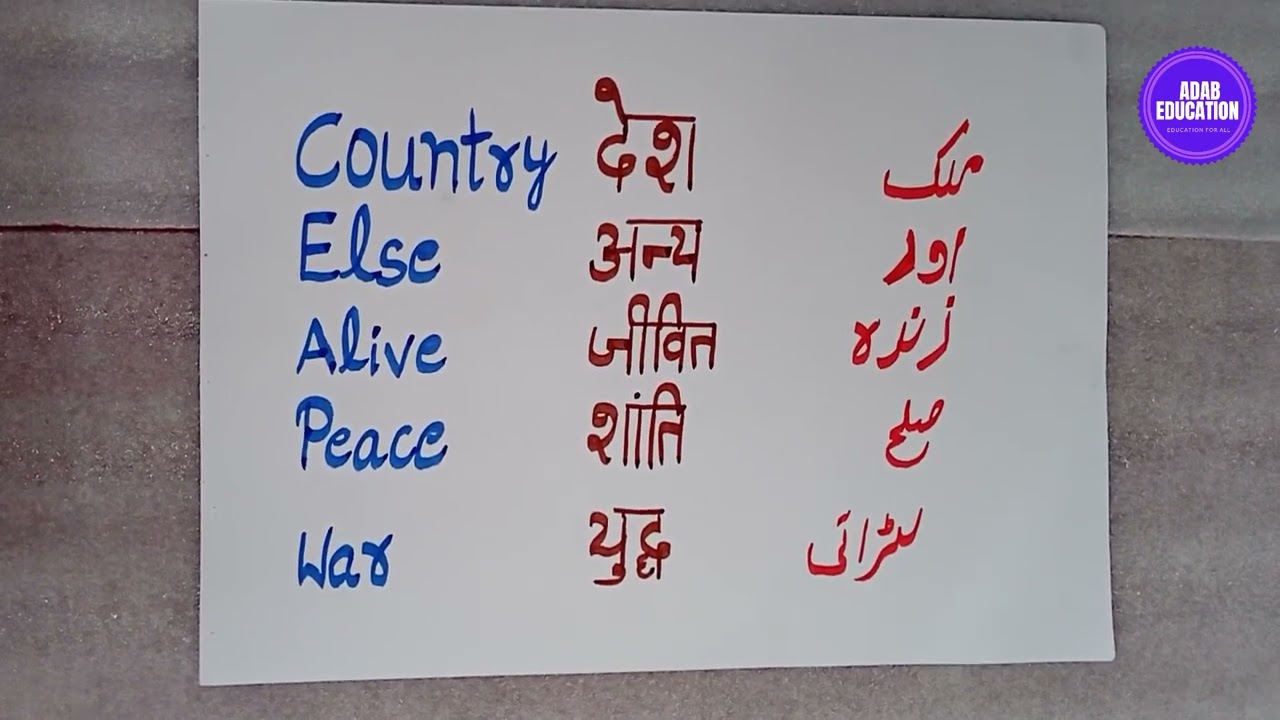 Country देश ملک
Else अन्य اور
Alive जीवित زندہ
Peace शांति صلح
War युद्ध لڑائی
ADAB
EDUCATION
EDUCATION FOR ALL